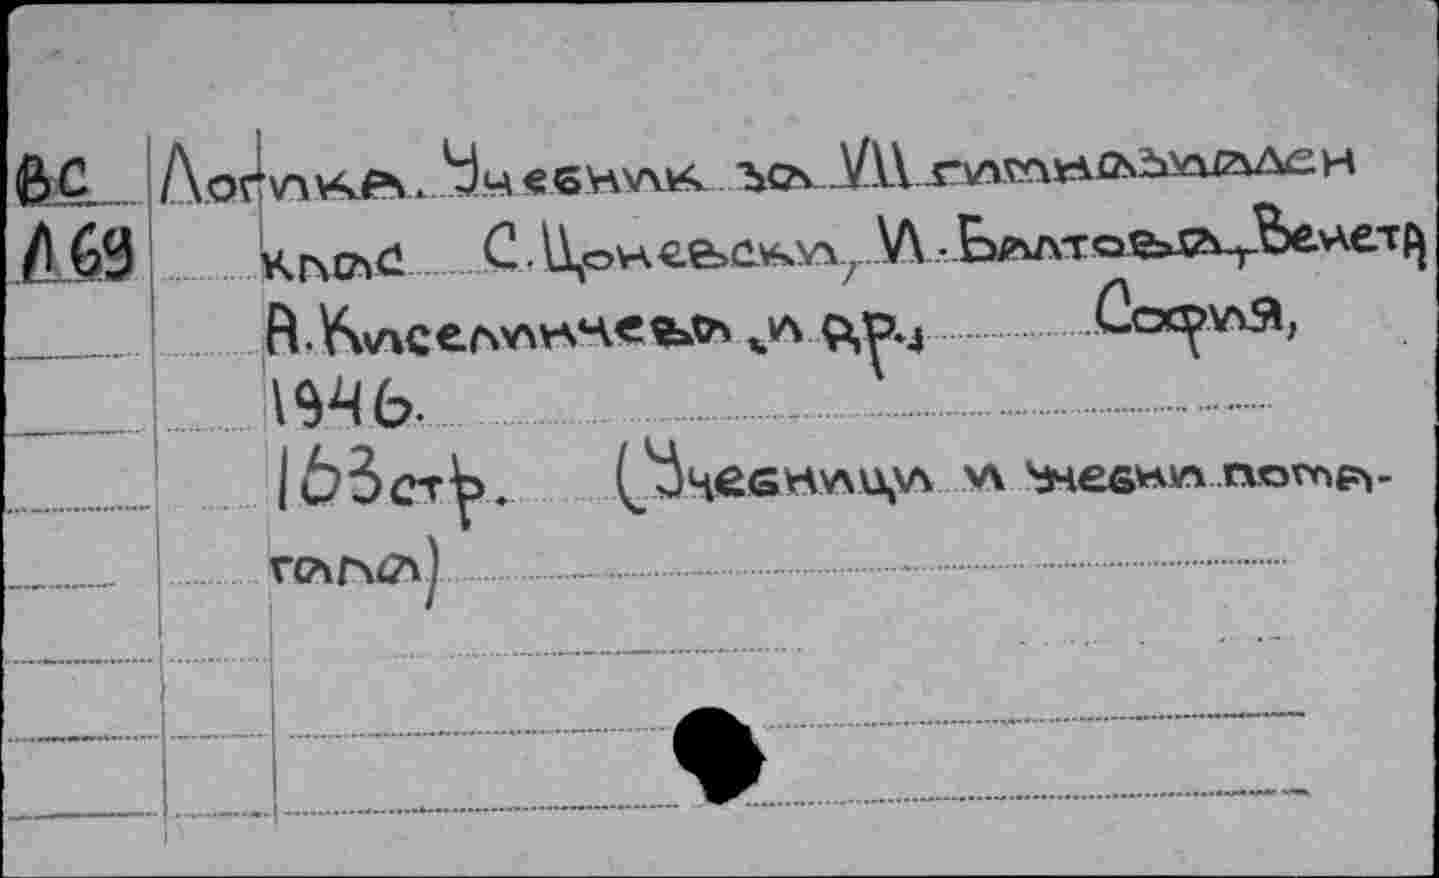 ВС Логика. Учебник за VII гимназиален
Л69 клас С. Цоневски, И. Балтова, Венета
А. Киселинчева и др., София,
1946.
163 стр. (Учебници и учебни помага-
гала)